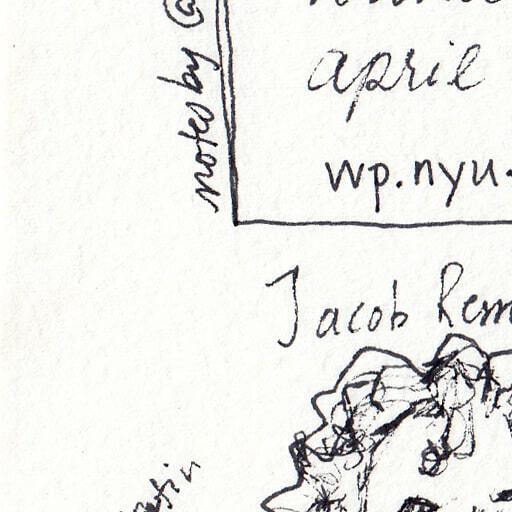 notes by @
april
wp.nyu.
Jacob Rem